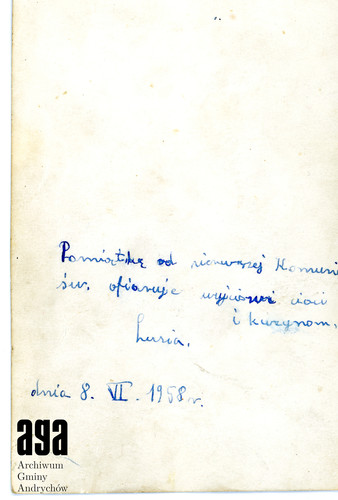 Pamiątkę od pierwszej Komuni
św. ofiaruje wujkowi cioci
i kuzynom.
Lusia.
dnia 8. VI. 1958r.
aga
Archiwum
Gminy
Andrychów